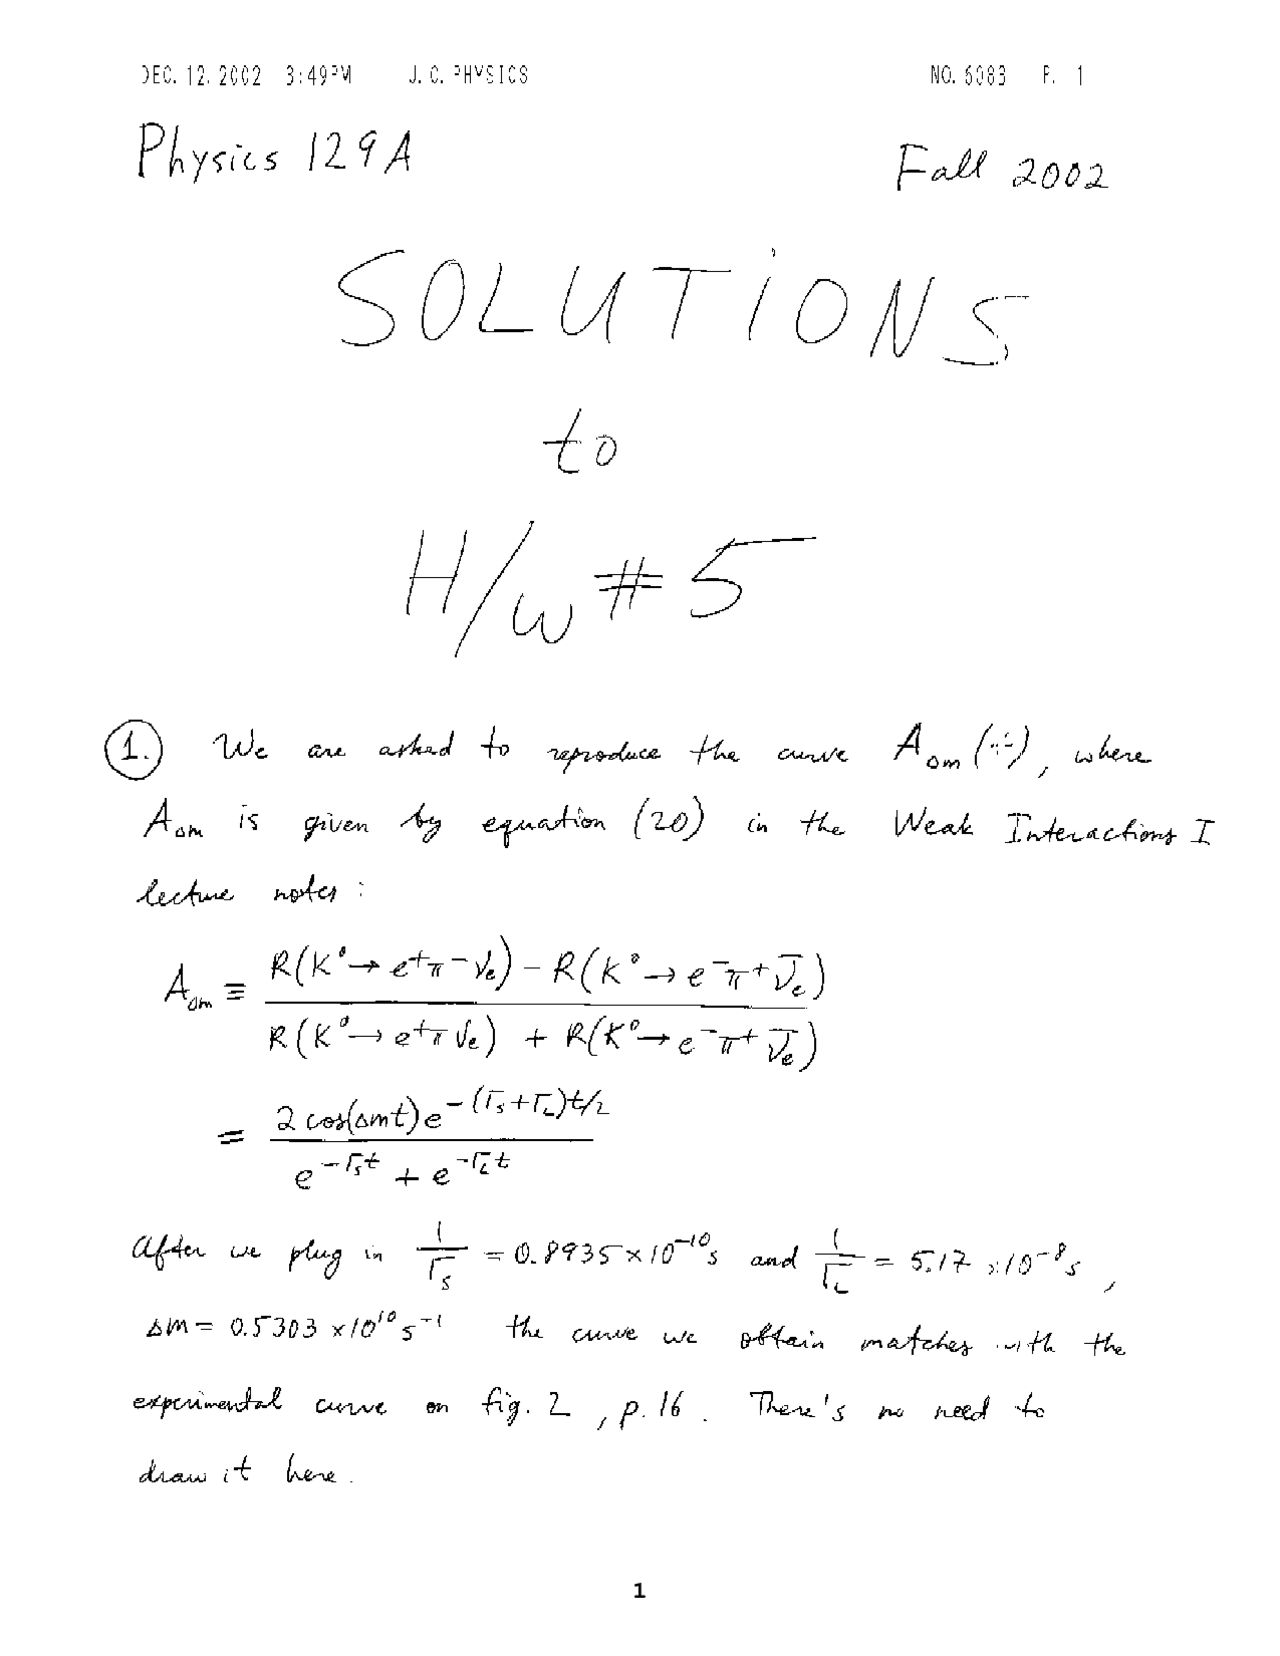 DEC. 12. 2002 3:49PM J. C. PHYSICS NO. 6083 P. 1
Physics 129A Fall 2002
SOLUTIONS
to
H/w #5
1. We are asked to reproduce the curve A_Δm(t), where
A_Δm is given by equation (20) in the Weak Interactions I
lecture notes:
A_Δm ≡ (R(K⁰→e⁺π⁻νe) − R(K⁰→e⁻π⁺ν̄e)) / (R(K⁰→e⁺π νe) + R(K⁰→e⁻π⁺ν̄e))
= (2 cos(Δmt) e^{−(Γs+ΓL)t/2}) / (e^{−Γst} + e^{−ΓLt})
After we plug in 1/Γs = 0.8935×10⁻¹⁰s and 1/ΓL = 5.17×10⁻⁸s,
Δm = 0.5303×10¹⁰s⁻¹ the curve we obtain matches with the
experimental curve on fig. 2, p. 16. There's no need to
draw it here.
1